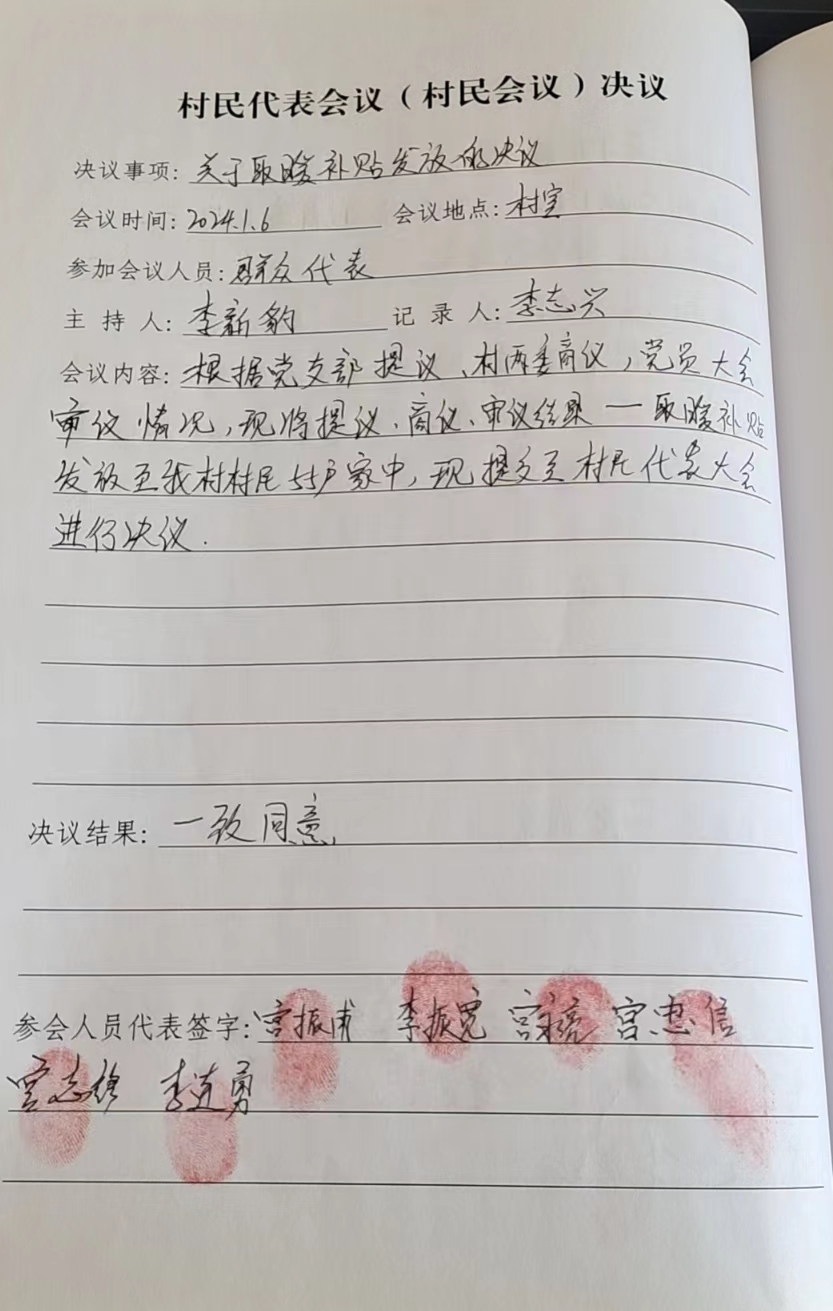 村民代表会议（村民会议）决议
决议事项：关于取暖补贴发放的决议
会议时间：2024.1.6 会议地点：村室
参加会议人员：群众代表
主持人：李新豹 记录人：李志兴
会议内容：根据党支部提议、村两委商议，党员大会
审议情况，现将提议、商议、审议结果一取暖补贴
发放至我村村民55户家中，现提交至村民代表大会
进行决议.
决议结果：一致同意
参会人员代表签字：宫振甫 李振宽 宫亮 宫忠信
宫志 李连勇